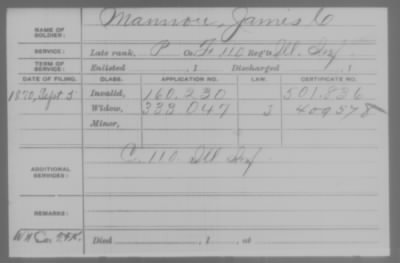 NAME OF SOLDIER: Mannon, James C
SERVICE: Late rank, P Co. F, 110 Reg't Ill. Inf
TERM OF SERVICE: Enlisted , 1 Discharged , 1
DATE OF FILING. CLASS. APPLICATION NO. LAW. CERTIFICATE NO.
1870, Sept. 5 Invalid, 160.230 501.836
Widow, 333 047 J 409578
Minor,
C. 110 Ill Inf
ADDITIONAL SERVICES:
REMARKS:
Died , 1 , at